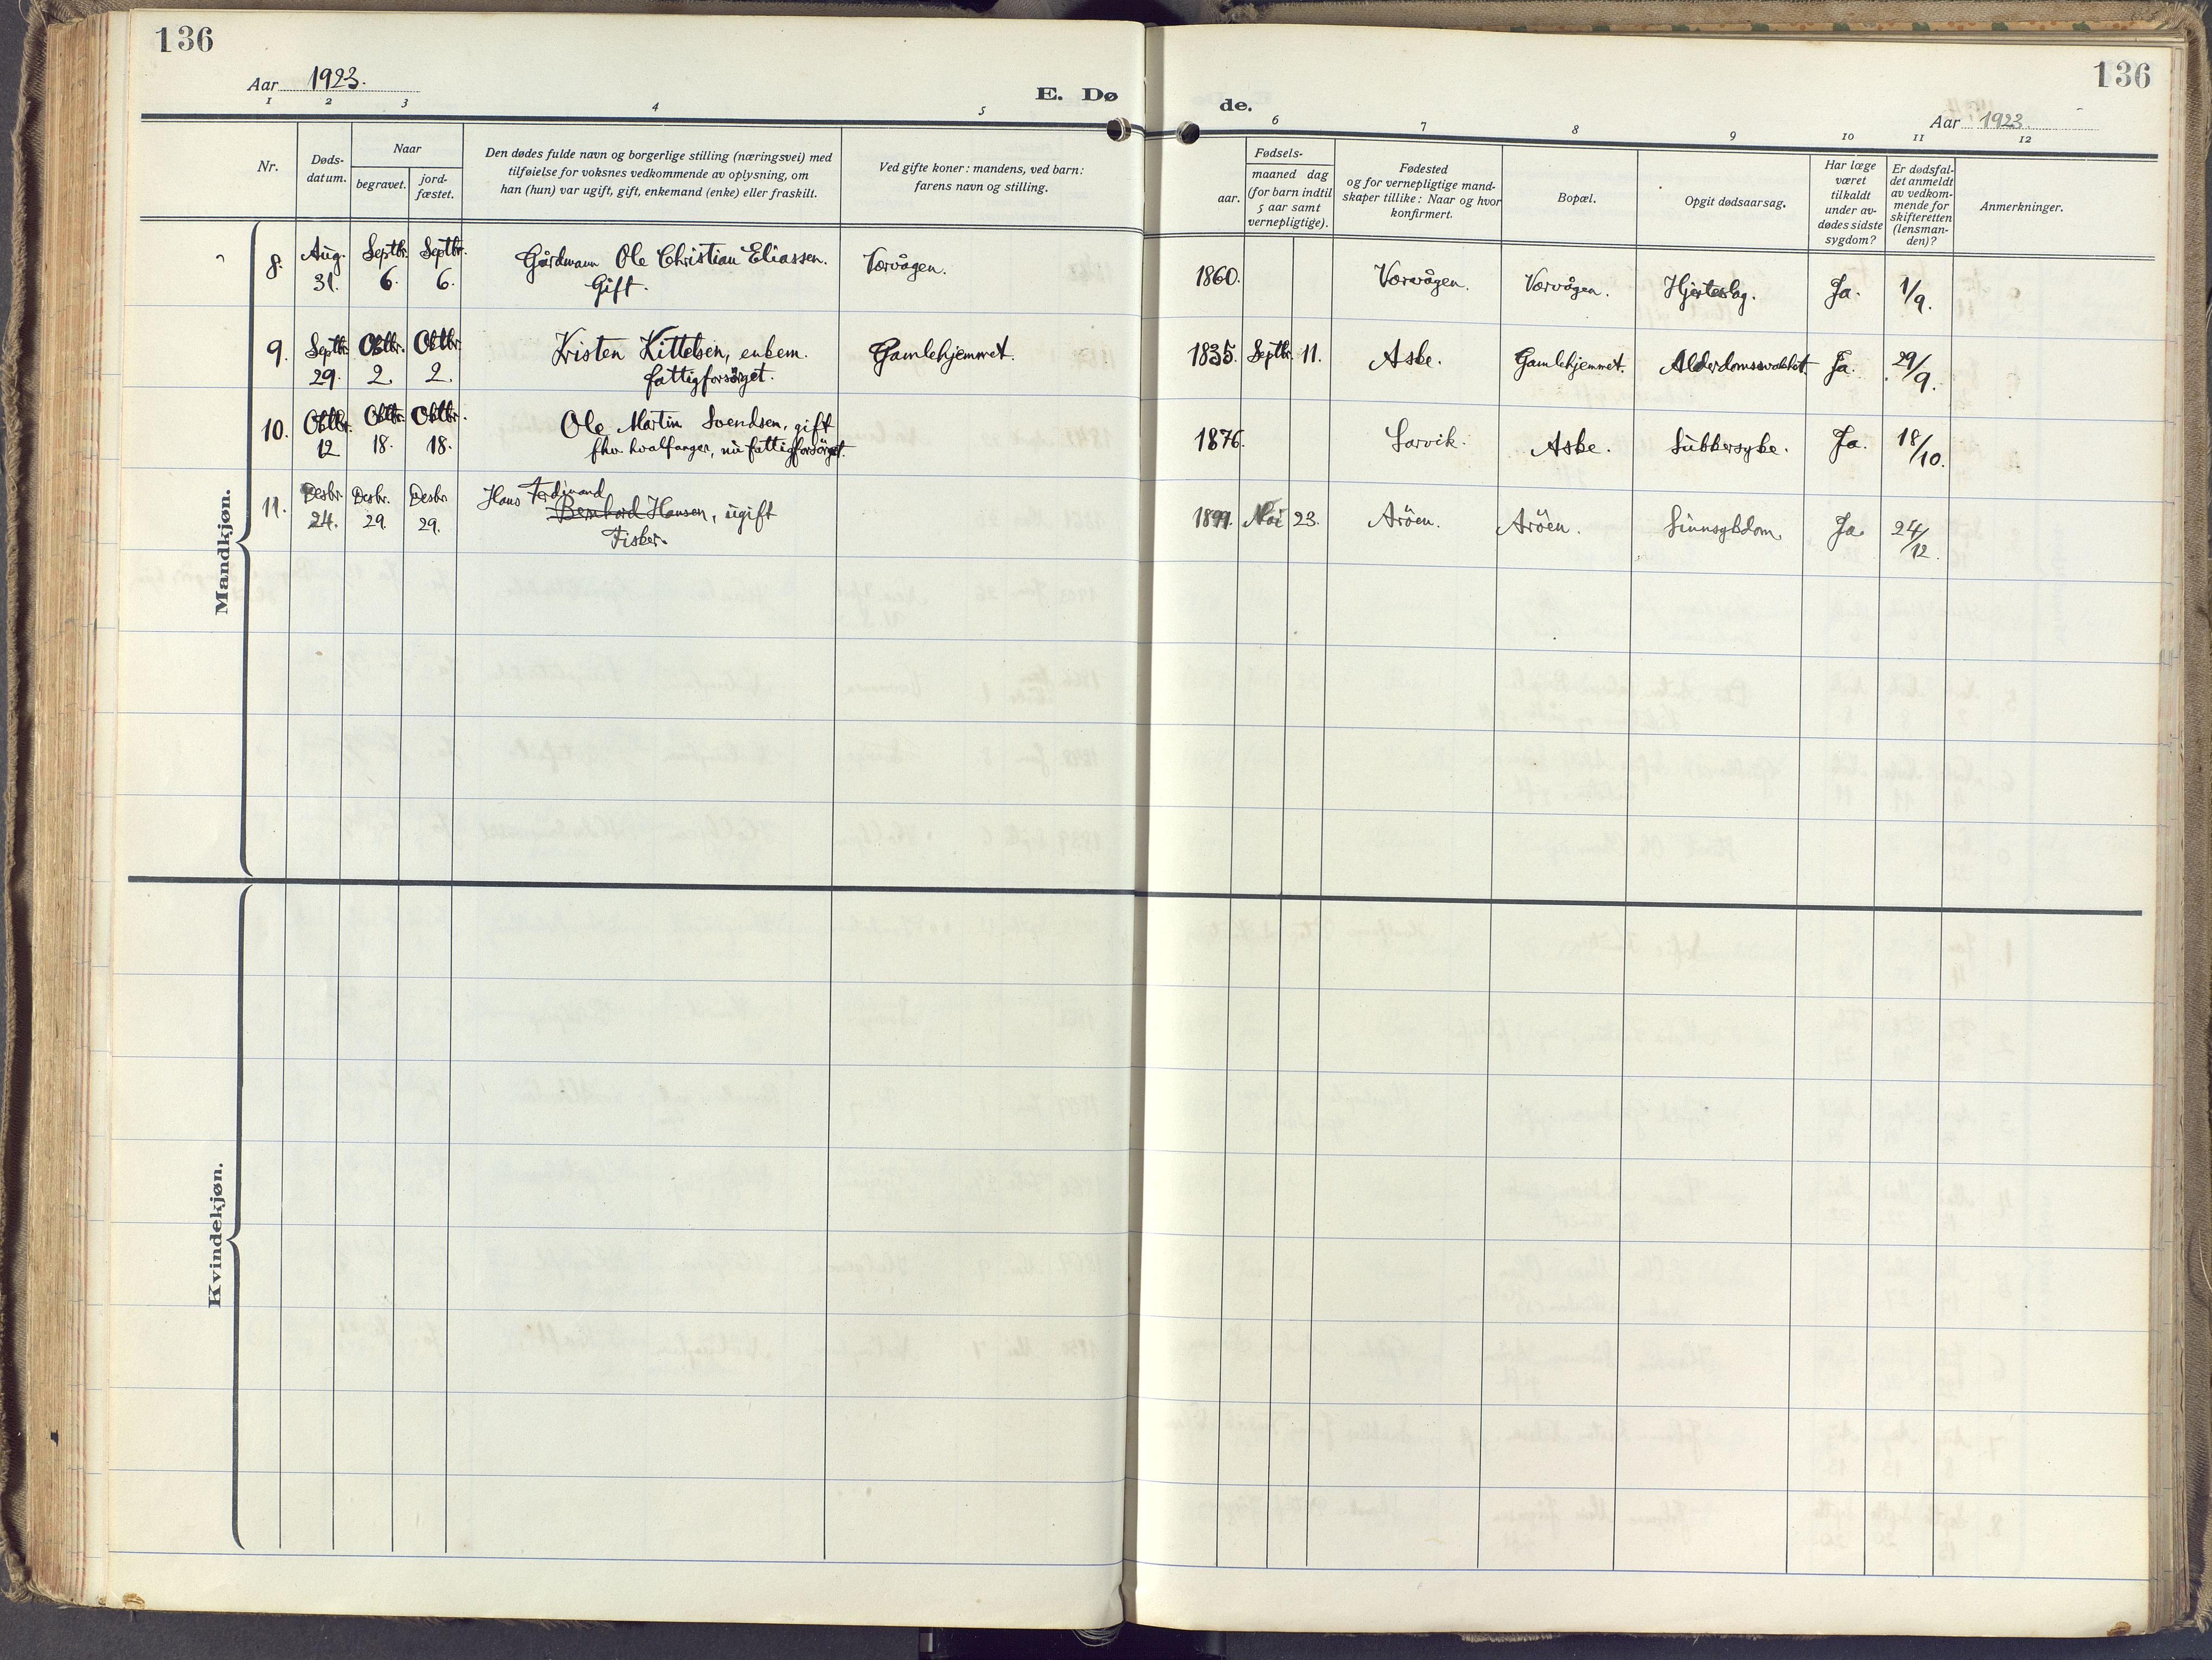 136
136
Aar 1923.
E. Dø
de.
Aar 1923.
1 2 3 4 5 6 7 8 9 10 11 12
Nr.
Døds-
datum.
Naar
begravet.
jord-
fæstet.
Den dødes fulde navn og borgerlige stilling (næringsvei) med
tilføielse for voksnes vedkommende av oplysning, om
han (hun) var ugift, gift, enkemand (enke) eller fraskilt.
Ved gifte koner: mandens, ved barn:
farens navn og stilling.
aar.
Fødsels-
maaned dag
(for barn indtil
5 aar samt
vernepligtige).
Fødested
og for vernepligtige mand-
skaper tillike: Naar og hvor
konfirmert.
Bopæl.
Opgit dødsaarsag.
Har læge
været
tilkaldt
under av-
dødes sidste
sygdom?
Er dødsfal-
det anmeldt
av vedkom-
mende for
skifteretten
(lensman-
den)?
Anmerkninger.
Mandkjøn.
8. Aug. Septbr. Septbr. Gårdmann Ole Christian Eliassen. Vorvågen. 1860. Vorvågen. Vorvågen. Hjerteslag. Ja. 1/9.
31. 6. 6. Gift.
9. Septbr. Oktbr. Oktbr. Kristen Kittelsen, enkem. Gamlehjemmet. 1835. Septbr. 11. Aske. Gamlehjemmet. Alderdomssvakhet Ja. 29/9.
29. 2. 2. fattigforsörget.
10. Oktbr. Oktbr. Oktbr. Ole Martin Svendsen, gift 1876. Larvik. Aske. Sukkersyke. Ja. 18/10.
12 18. 18. fhv. hvalfanger, nu fattigforsörget.
11. Desbr. Desbr. Desbr. Hans Ferdinand
24. 29. 29. Bernhard Hansen, ugift 1899. Mai 23. Aröen. Aröen. Sinnsykdom. Ja. 24/12.
Fisker.
Kvindekjøn.